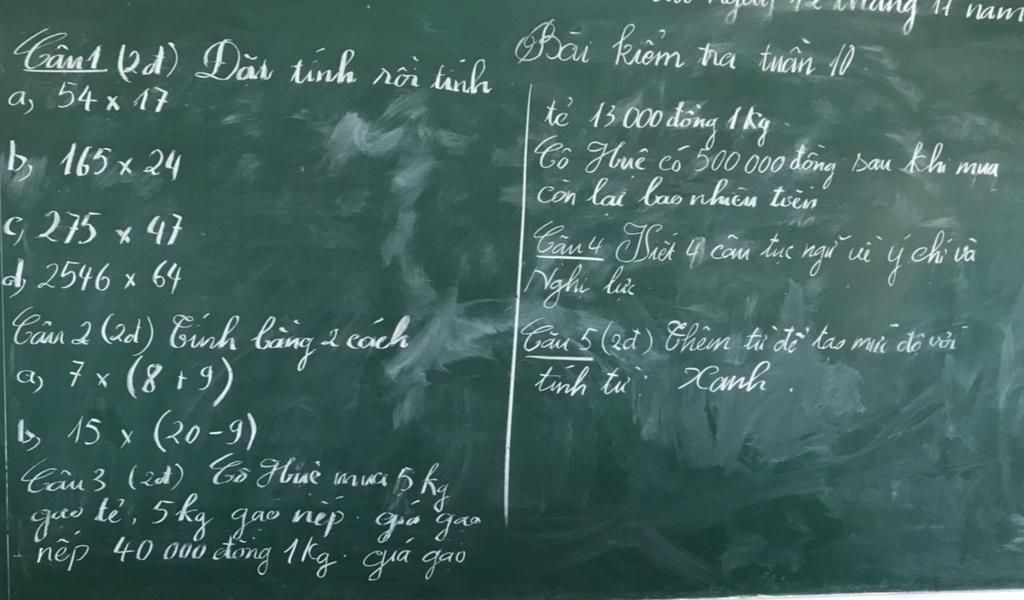 ngày 12 tháng 11 năm
Bài kiểm tra tuần 10
Câu 1 (2đ) Đặt tính rồi tính
a, 54 x 17
b, 165 x 24
c, 275 x 47
d, 2546 x 64
Câu 2 (2đ) Tính bằng 2 cách
a, 7 x (8 + 9)
b, 15 x (20 - 9)
Câu 3 (2đ) Cô Huê mua 5 kg
gạo tẻ, 5 kg gạo nếp. giá gạo
nếp 40 000 đồng 1 kg. giá gạo
tẻ 13 000 đồng 1 kg.
Cô Huê có 500 000 đồng sau khi mua
còn lại bao nhiêu tiền
Câu 4 Viết 4 câu tục ngữ về ý chí và
Nghị lực
Câu 5 (2đ) Thêm từ để tạo mức độ với
tính từ: Xanh.